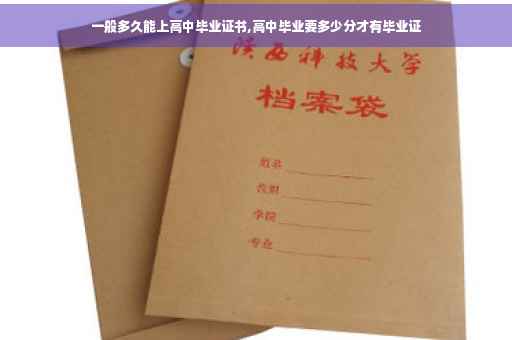 一般多久能上高中毕业证书,高中毕业要多少分才有毕业证
陕西科技大学
档案袋
姓名
学院
专业